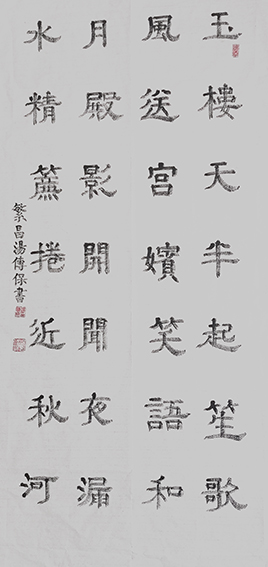 玉樓天半起笙歌
風送宮嬪笑語和
月殿影開聞夜漏
水精簾捲近秋河
繁昌湯傳保書